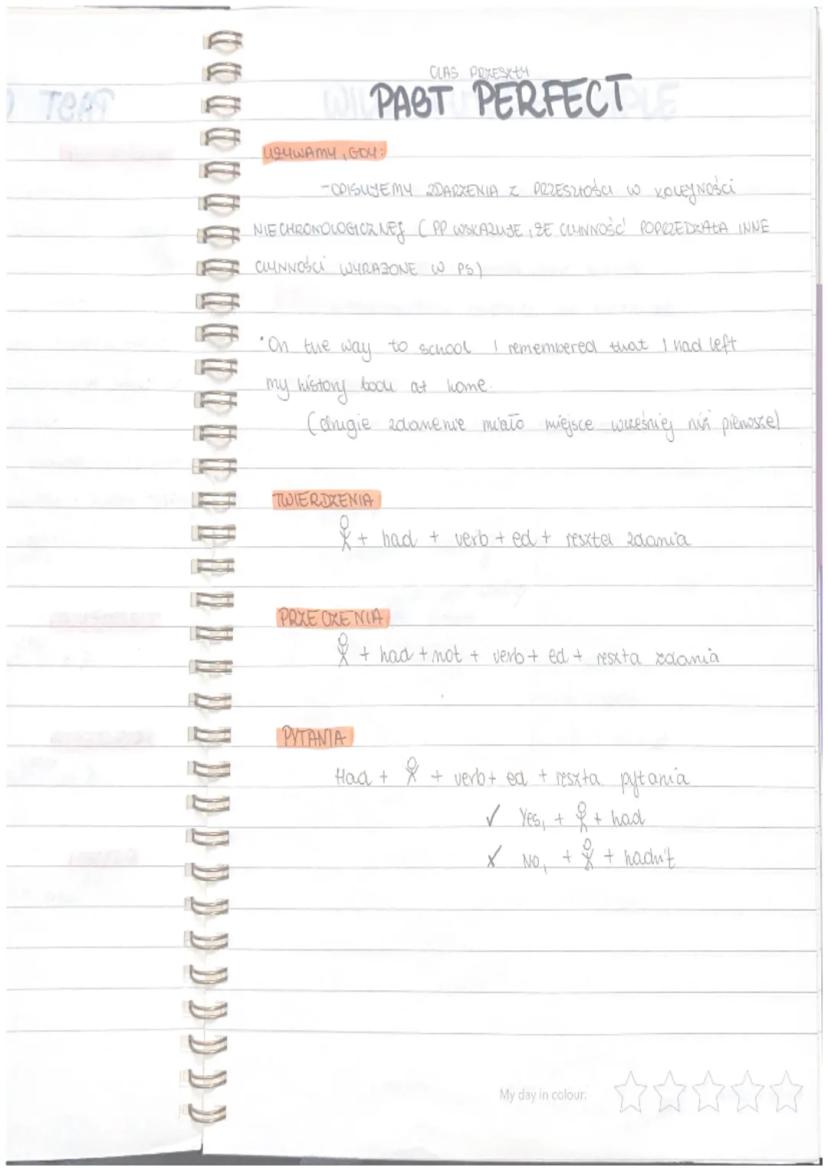 CZAS PRZESZŁY
PAST PERFECT
UŻYWAMY, GDY:
-OPISUJEMY ZDARZENIA Z PRZESZŁOŚCI W KOLEJNOŚCI
NIECHRONOLOGICZNEJ (PP WSKAZUJE, ŻE CZYNNOŚĆ POPRZEDZAŁA INNE
CZYNNOŚCI WYRAŻONE W PS)
On the way to school I remembered that I had left
my history book at home.
(drugie zdanienie miało miejsce wcześniej niż pierwsze)
TWIERDZENIA
+ had + verb + ed + reszta zdania
PRZECZENIA
+ had + not + verb + ed + reszta zdania
PYTANIA
Had + + verb + ed + reszta pytania
✓ Yes, + + had
✗ No, + + hadn't
My day in colour: